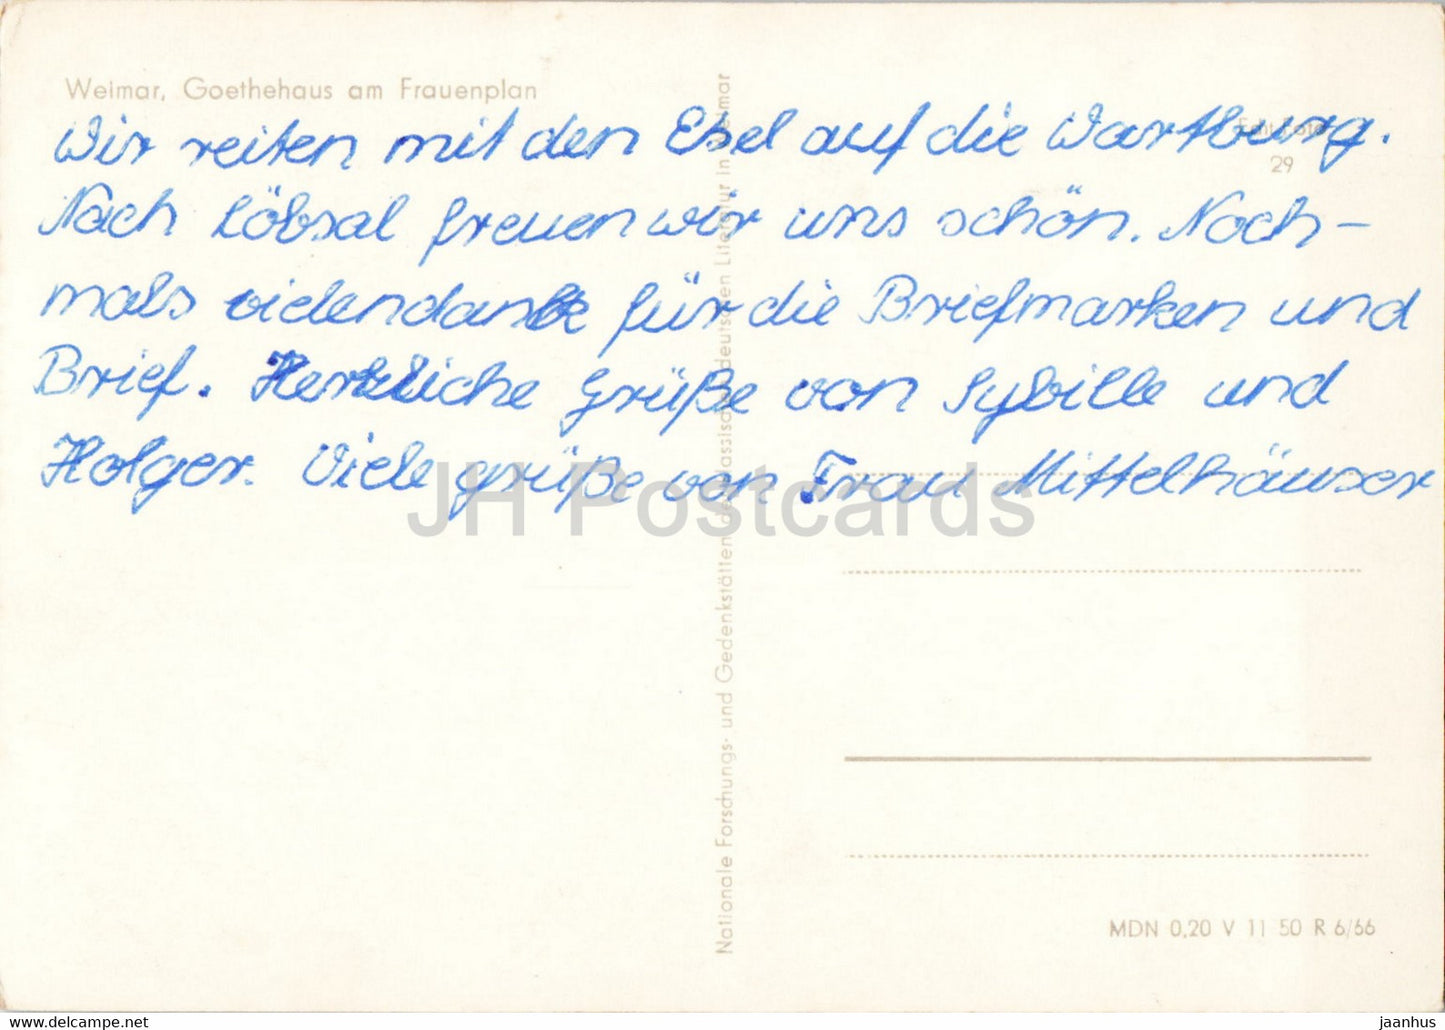 Weimar, Goethehaus am Frauenplan
Echt Foto
29
Wir reiten mit den Esel auf die Wartburg.
Nach Löbsal freuen wir uns schön. Noch-
mals vielendank für die Briefmarken und
Brief. Herzliche Grüße von Sybille und
Holger. Viele grüße von Frau Mittelhäuser
JH Postcards
Nationale Forschungs- und Gedenkstätten der klassischen deutschen Literatur in Weimar
MDN 0,20 V 11 50 R 6/66
https://www.delcampe.net
jaanhus